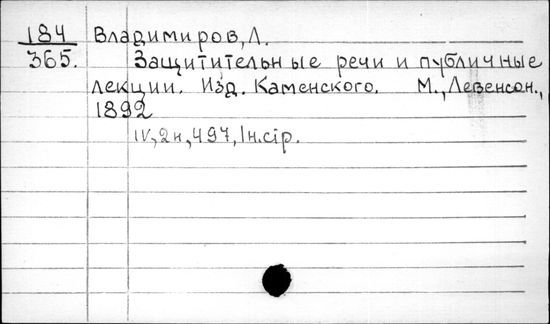 184 Владимиров, Л.
365. Защитительные речи и публичные
лекции. Изд. Каменского. М., Левенсон.,
1892
IV, 2н, 497, 1н. стр.